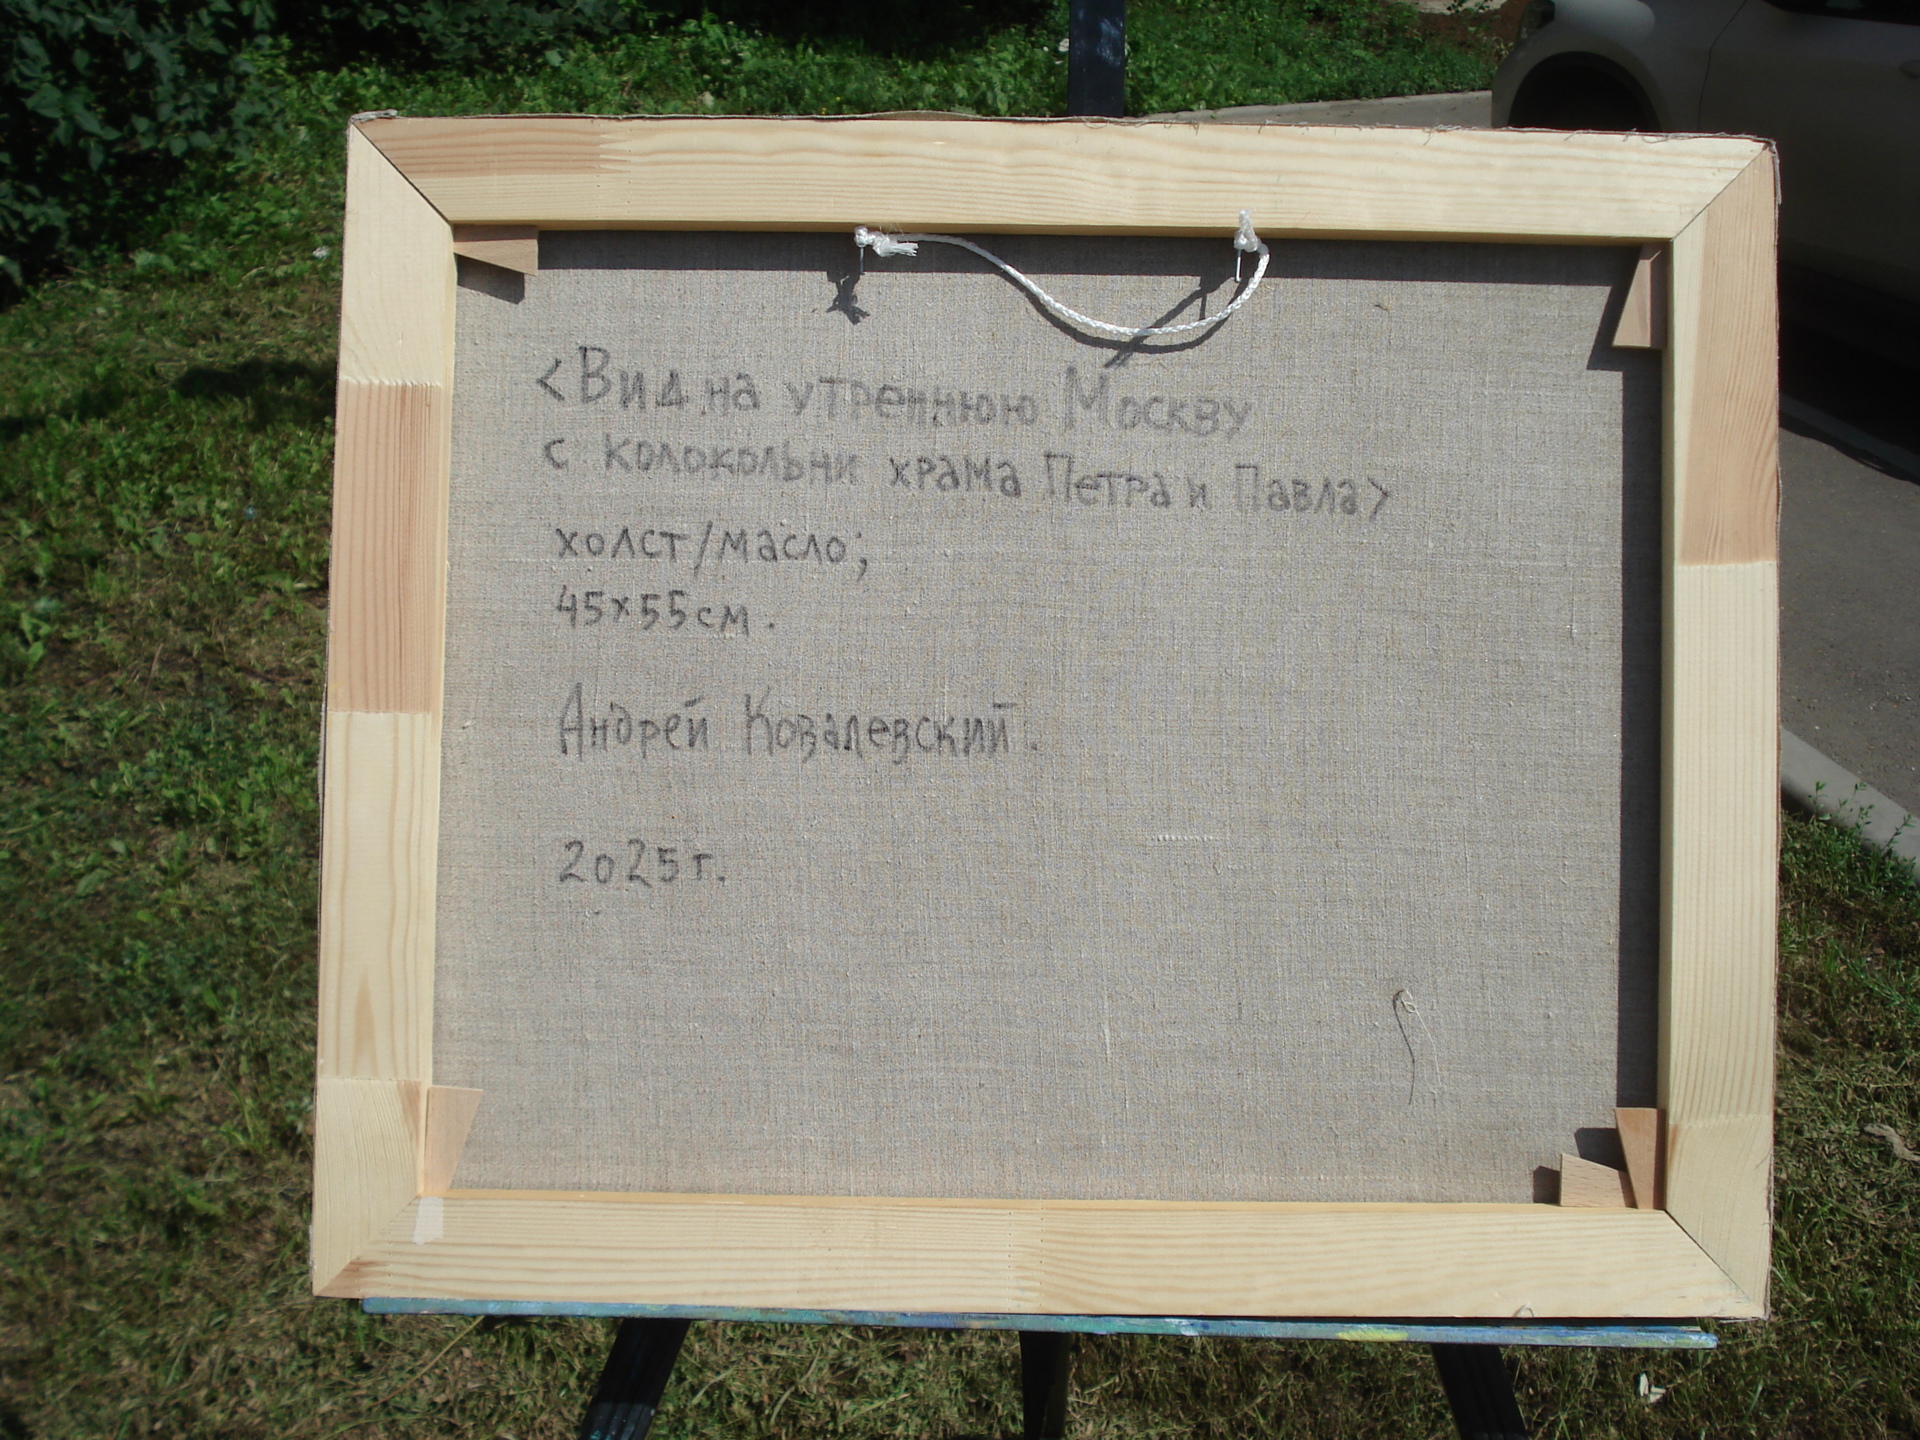 <Вид на утреннюю Москву
с колокольни храма Петра и Павла>
холст/масло;
45х55см.
Андрей Ковалевский.
2025г.